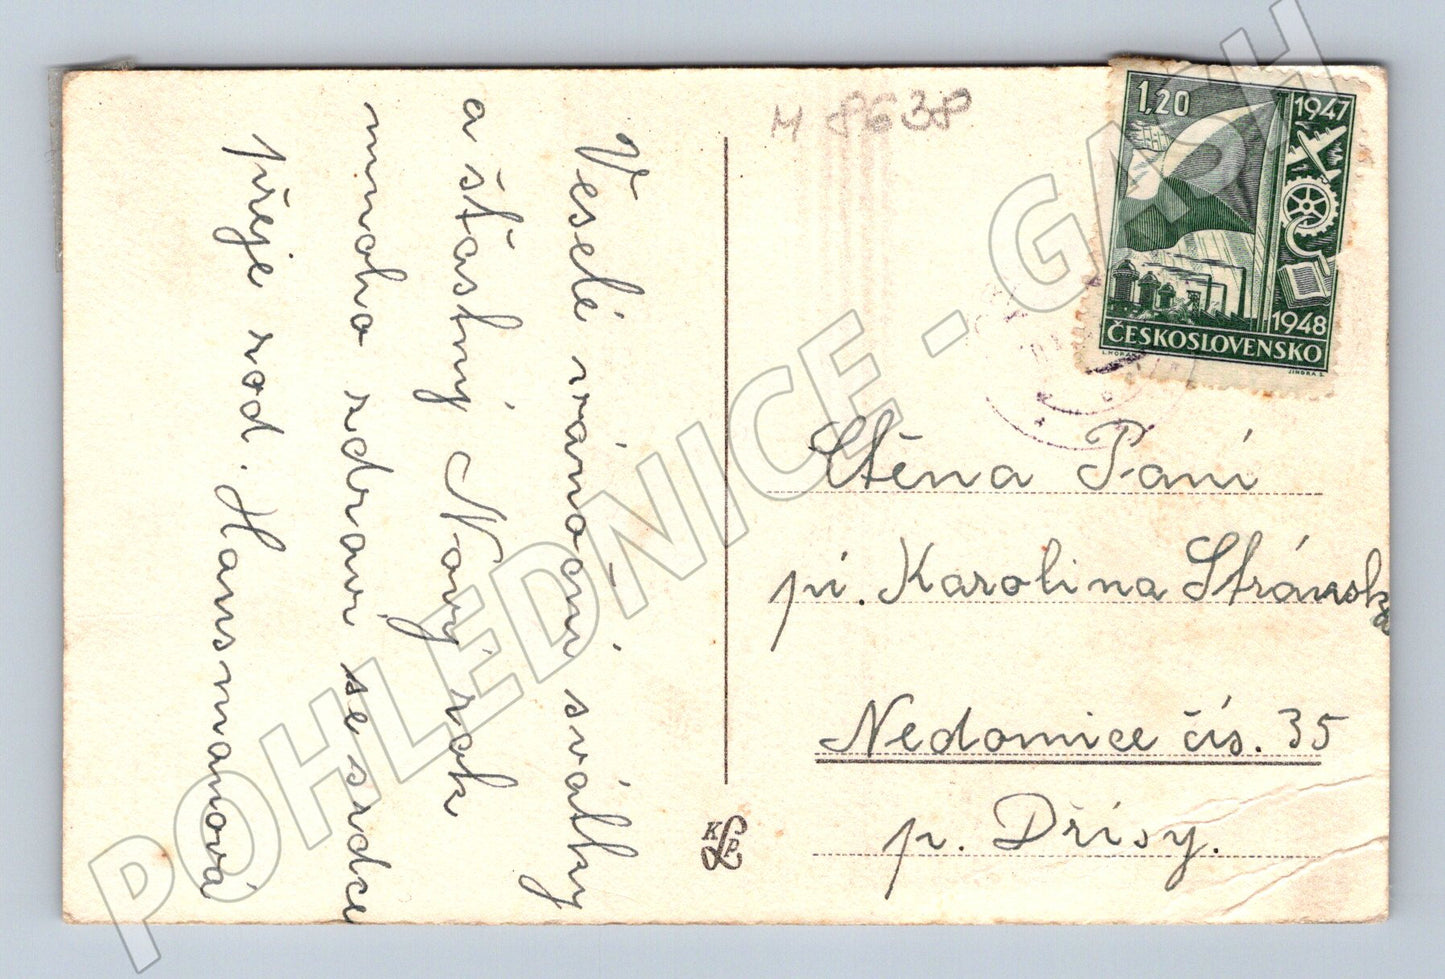 Veselé vánoční svátky
a šťastný Nový rok
mnoho zdraví se srdce
přeje rod. Hansmanová
M 8638
1,20
1947
1948
ČESKOSLOVENSKO
Ctěna Paní
pí. Karolina Stránská
Nedomice čís. 35
p. Dřísy.
K P
POHLEDNICE - GASH